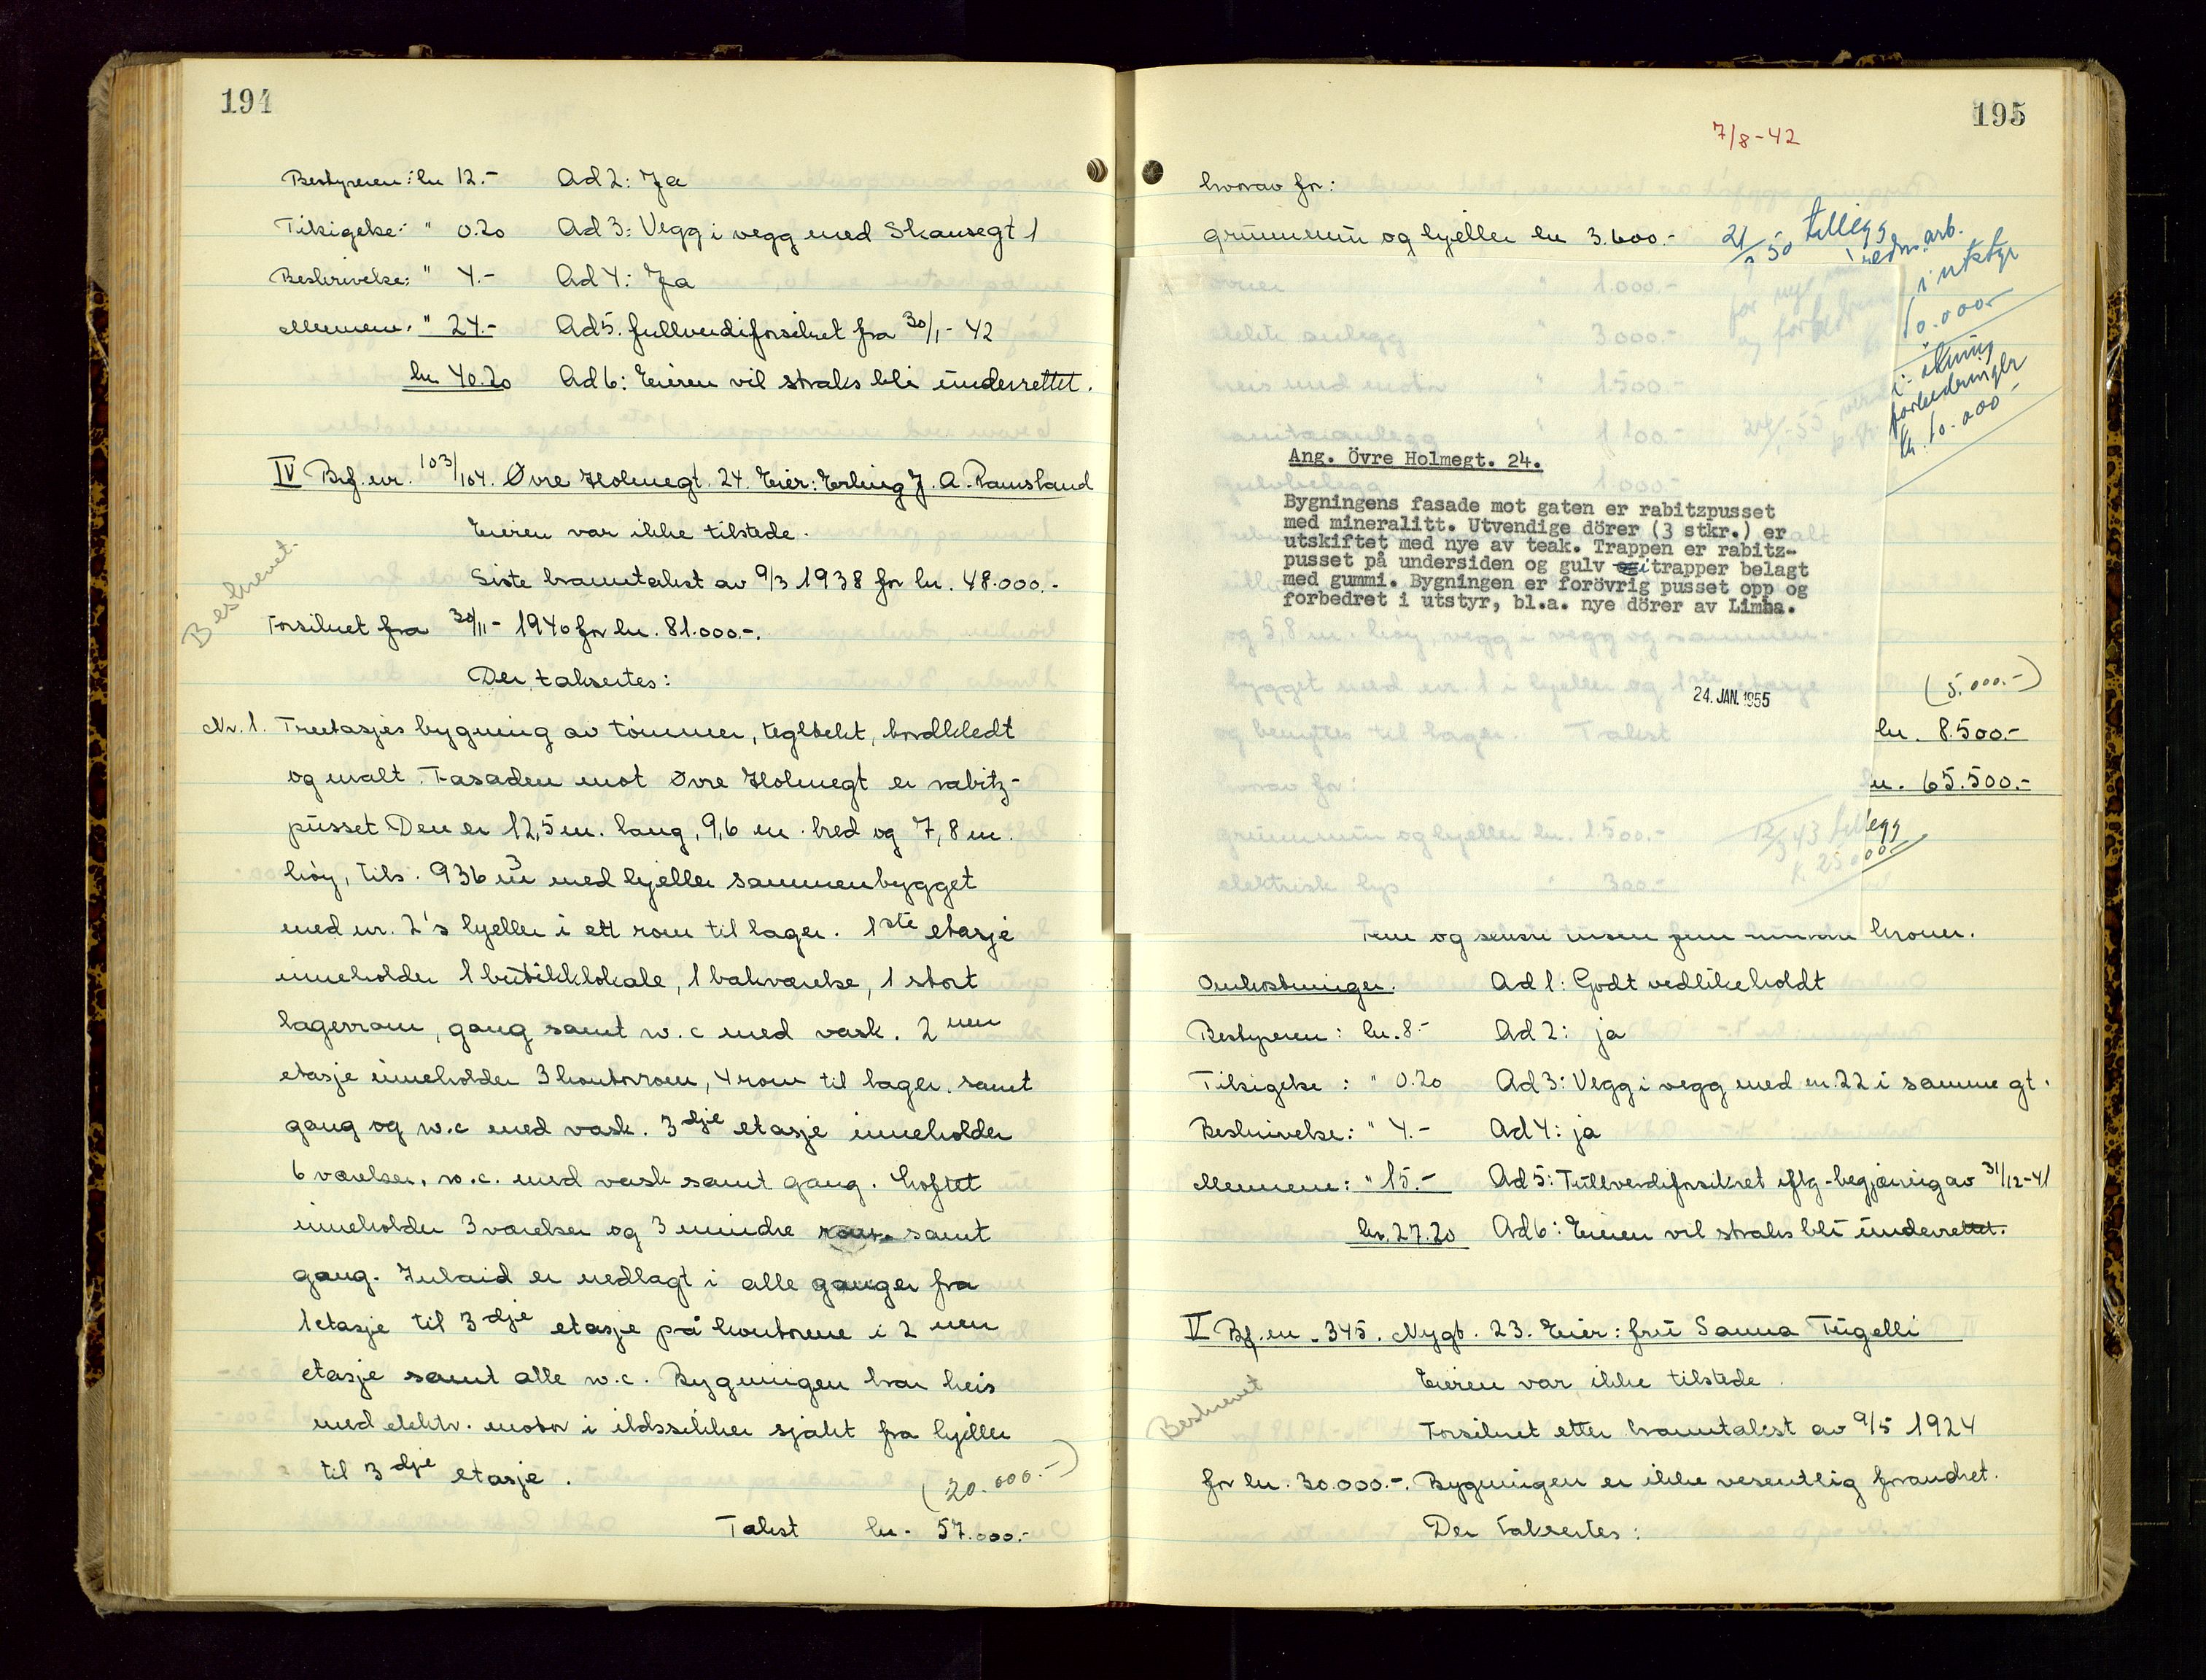 194
Bestyreren: kr 12.- Ad 2: Ja
Tilsigelse: " 0.20 Ad 3: Vegg i vegg med Skansegt 1
Beskrivelse: " 4.- Ad 4: Ja
Mennene: " 24.- Ad 5. fullverdiforsikret fra 30/1- 42
kr. 40.20 Ad 6: Eieren vil straks bli underrettet.
IV Brf. nr. 103/104. Øvre Holmegt. 24. Eier: Erling J. A. Ramsland
Eieren var ikke tilstede.
Beskrevet.
Siste branntakst av 9/3 1938 for kr. 48.000.-
Forsikret fra 30/11- 1940 for kr. 81.000.-.
Der takseres:
Nr. 1. Treetasjes bygning av tømmer, teglteket, bordkledt
og malt. Fasaden mot Øvre Holmegt er rabitz-
pusset Den er 12,5 m. lang, 9,6 m. bred og 7,8 m.
høy, tils. 936 m3 med kjeller sammenbygget
med nr. 2's kjeller i ett rom til lager. 1ste etasje
inneholder 1 butikklokale, 1 bakværelse, 1 stort
lagerrom, gang samt w.c med vask. 2nen
etasje inneholder 3 kontorrom, 4 rom til lager, samt
gang og w.c med vask. 3dje etasje inneholder
6 værelser, w.c. med vask samt gang. Loftet
inneholder 3 værelser og 3 mindre rom samt
gang. Inlaid er nedlagt i alle ganger fra
1 etasje til 3dje etasje på kontorene i 2nen
etasje samt alle w.c. Bygningen har heis
med elektr. motor i ildssikker sjakt fra kjeller
til 3dje etasje.
(20.000.-)
Takst kr. 57.000.-
195
7/8-42
hvorav for:
grunnmur og kjeller kr 3.600.-
21/9 50 tillegg
redm. arb.
i utstyr
10.000.-
økning
forbedringer
kr. 10.000.-
ovner " 1.000.-
elektr. anlegg " 3000.-
heis med motor " 1500.-
sanitæranlegg " 1.100.-
gulvbelegg " 1.000.-
Ang. Övre Holmegt. 24.
Bygningens fasade mot gaten er rabitzpusset
med mineralitt. Utvendige dörer (3 stkr.) er
utskiftet med nye av teak. Trappen er rabitz-
pusset på undersiden og gulv i trapper belagt
med gummi. Bygningen er forövrig pusset opp og
forbedret i utstyr, bl.a. nye dörer av Limba.
og 5,8 m. høy, vegg i vegg og sammen-
bygget med nr. 1 i kjeller og 1ste etasje
24. JAN. 1955
(5.000.-)
og benyttes til lager. Takst kr. 8.500.-
kr. 65.500.-
hvorav for:
grunnmur og kjeller kr. 1.500.-
12/3 43 tillegg
k. 25000.-
elektrisk lys " 300.-
Fem og seksti tusen fem hundre kroner.
Omkostninger. Ad 1: Godt vedlikeholdt
Bestyreren: kr. 8.- Ad 2: ja
Tilsigelse: " 0.20 Ad 3: Vegg i vegg med nr. 22 i samme gt.
Beskrivelse: " 4.- Ad 4: ja
Mennene: " 15.- Ad 5: Fullverdiforsikret iflg. begjæring av 31/12-41
kr. 27.20 Ad 6: Eieren vil straks bli underrettet.
V Bf. nr. 345. Nygt. 23. Eier: fru Sanna Tugelli
Eieren var ikke tilstede.
Beskrevet
Forsikret etter branntakst av 9/5 1924
for kr. 30.000.-. Bygningen er ikke vesentlig forandret.
Der takseres: